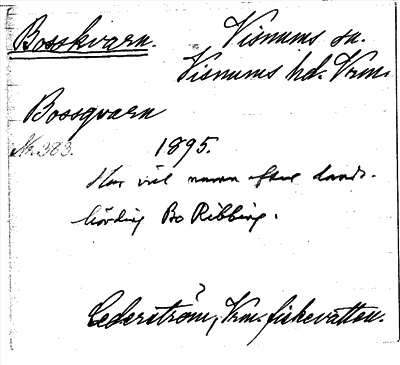 Bosskvarn. Visnums sn.
Visnums hd. Vrm.
Bossqvarn
Nr 383. 1895.
Har väl namn efter lands-
hövding Bo Ribbing.
Cederström, Vrm. fiskevatten.